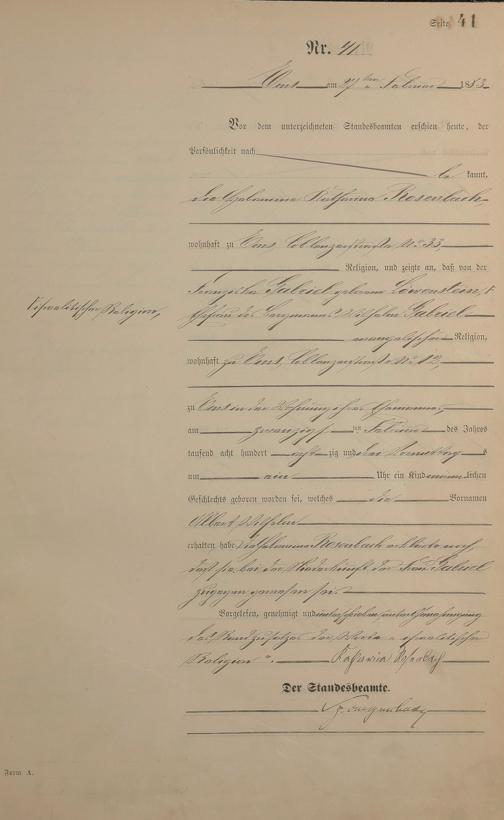 Seite 41
Nr. 41
Ems am Februar 1883
Vor dem unterzeichneten Standesbeamten erschien heute, der
Persönlichkeit nach
be kannt,
die Hebamme Katharina Rosenbach
wohnhaft zu Ems, Coblenzerstraße No 33,
Religion, und zeigte an, daß von der
Franziska Gabriel geborene Löwenstein,
Ehefrau des Wilhelm Gabriel
evangelischer Religion,
israelitischer Religion,
wohnhaft zu Ems, Coblenzerstraße No 12,
zu Ems in der Wohnung ihres Ehemannes,
am zwanzigsten Februar des Jahres
tausend acht hundert acht zig und drei Vormittags
um ein Uhr ein Kind männlichen
Geschlechts geboren worden sei, welches die Vornamen
Albert Wilhelm
erhalten habe. Die Hebamme Rosenbach erklärte noch,
daß sie bei der Niederkunft der Frau Gabriel
zugegen gewesen sei.
Vorgelesen, genehmigt und unterschrieben unter Genehmigung
des Randzusatzes der Worte „israelitischer
Religion". Katharina Rosenbach
Der Standesbeamte.
Form A.